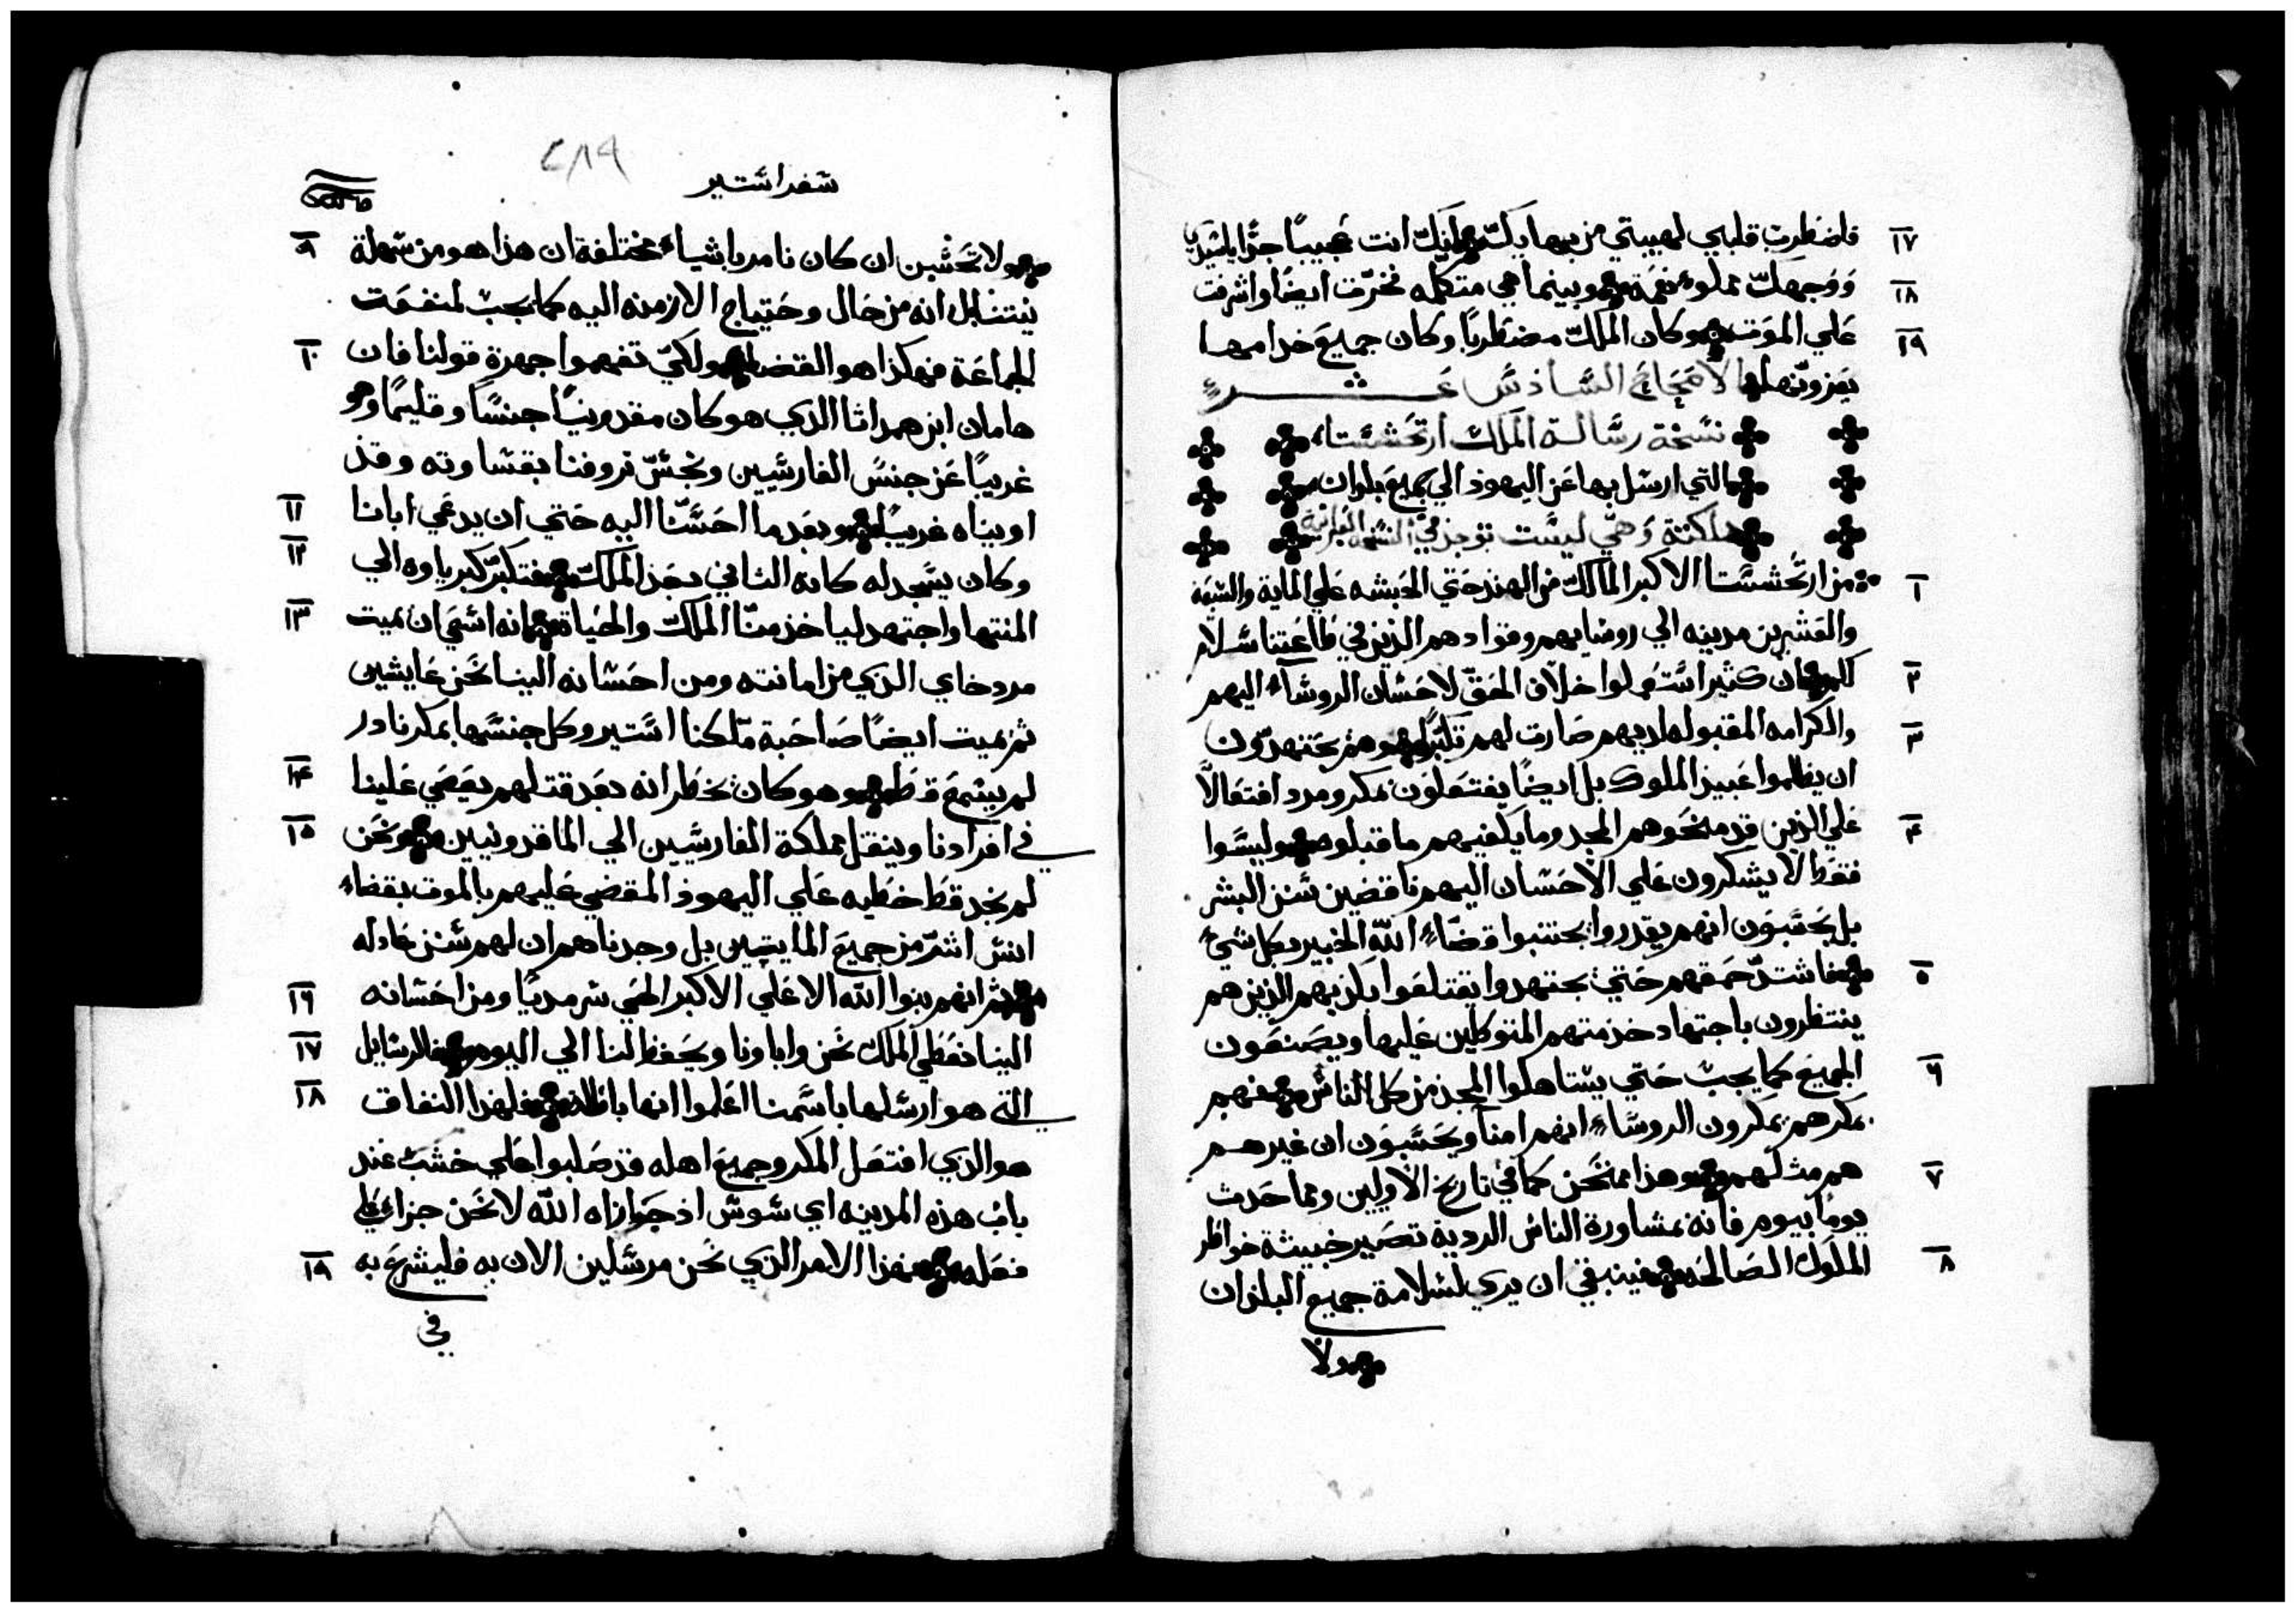 ١٧ فاضطرب قلبي لهيبتي من بهايك لانك انت عجيبًا جدًّا يا سيدي
١٨ ووجهك مملوء نعمة وبينما هي متكلمه فخرّت ايضًا واشرفت
١٩ علي الموت وكان الملك مضطربًا وكان جميع خدامها
يعزونها الاصحاح السادس عشر
نسخة رسالة الملك ارتحششتا
التي ارسل بها عن اليهود الي جميع بلدان
مملكته وهي ليست توجد في النسخ العبرانية
١ من ارتحششتا الاكبر المالك من الهند حتي الحبشه علي الماية والسبعة
والعشرين مدينه الي روسايهم وقوادهم الذين في طاعتنا سلام
٢ لكم ان كثير استعملوا خلاف الحق لاحسان الروساء اليهم
٣ والكرامه المقبوله لديهم صارت لهم تكبرًا وهم يجتهدون
ان يظلموا عبيد الملوك بل ايضًا يفتعلون مكر ومرد افتعالًا
٤ علي الذين قد منحوهم المجد وما يكفيهم ما قبلوه وليسوا
فقط لا يشكرون علي الاحسان اليهم ناقضين سنن البشر
بل يحسبون انهم يقدروا يجتنبوا قضاء الله الخبير بكل شيء
٥ فاشتد حمقهم حتي يجتهدوا يقتلعوا بكذبهم الذين هم
ينتظرون باجتهاد خدمتهم المتوكلين عليها ويصنعون
٦ الجميع كما يجب حتي يستاهلوا المجد من كل الناس فهم
بمكرهم يمكرون الروساء انهم امنآ ويحسبون ان غيرهم
٧ هم مثلهم وهذا ممتحن كما في تاريخ الاولين ومما حدث
يومًا بيوم فانه بمشاورة الناس الردية تصير خبيثة خواطر
٨ الملوك الصالحه فينبغي ان يري لسلامة جميع البلدان
ولا
٢٨٩
سفر استير
٩ ولا تحسبن ان كان نامر باشياء مختلفة ان هذا هو من سهلة
نيتنا بل انه من حال وحتياج الازمنه اليه كما يجب لمنفعت
١٠ الجماعة فهكذا هو القضا ولكي تفهموا جهرة قولنا فان
هامان ابن همداثا الذي هو كان مقدونيًا جنسًا وقليمًا وهو
غريبًا عن جنس الفارسيين ونجس تروفنا بقساوته وقد
١١ اويناه غريبًا وبعد ما احسنّا اليه حتي ان يدعي ابانا
١٢ وكان يسجد له كانه الثاني بعد الملك فتكبر كبرياوه الي
١٣ المنتها واجتهد لياخذ منّا الملك والحياة انه اسعي ان يميت
مردخاي الذي من امانته ومن احسانه الينا نحن عايشين
ثم يميت ايضًا صاحبة ملكنا استير وكل جنسها بمكر نادر
١٤ لم يسمع قط وهو كان يخطر انه بعد قتلهم يعصي علينا
١٥ في افرادنا وينقل مملكة الفارسيين الي الماقدونيين ونحن
لم نجد قط خطيه علي اليهود المقضي عليهم بالموت بقضاء
انس اشر من جميع المايتين بل وجدناهم ان لهم سنن عادله
١٦ ثم انهم بنوا الله الاعلي الاكبر الحي سرمديًا ومن احسانه
١٧ الينا نعطي الملك نحن واباونا ويحفظ لنا الي اليوم فالرسايل
١٨ التي هو ارسلها باسمنا اعلموا انها باطله فلهذا النفاق
هو الذي افتعل المكر وجميع اهله قد صلبوا علي خشب عند
باب هذه المدينه اي سوس اذ جوازاه الله لا نحن جزاء علي
١٩ فعله فهذا الامر الذي نحن مرسلين الان به فليشرع به
في